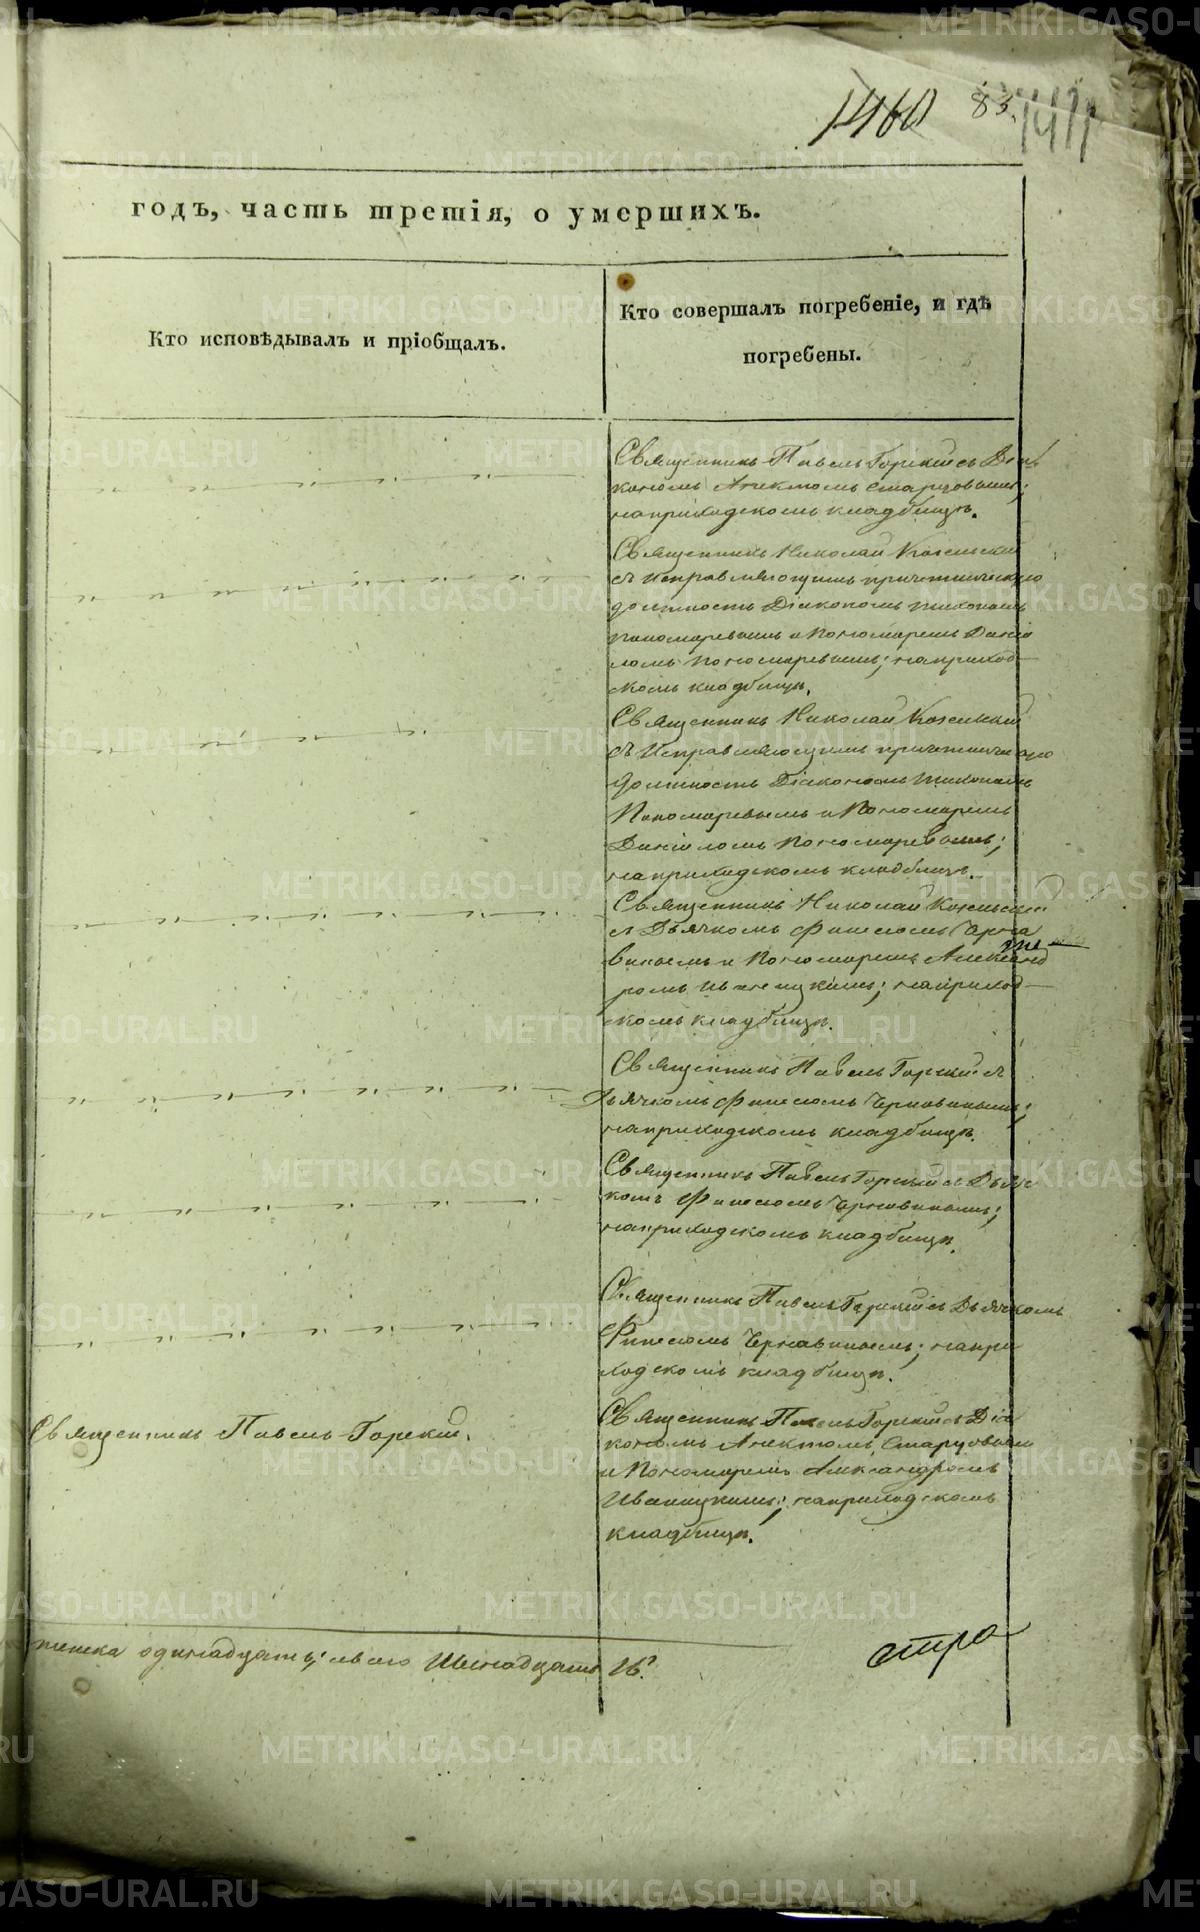 1460 83. 1411
годъ, часть третія, о умершихъ.
Кто исповѣдывалъ и пріобщалъ.
Кто совершалъ погребеніе, и гдѣ
погребены.
Священникъ Павелъ Горскій съ Діа
кономъ Старцовымъ;
наприходскомъ кладбищѣ.
Священникъ Николай
съ исправляющимъ причетническую
должность Діакономъ Тихономъ
Пономаревымъ и Пономаремъ Даніи
ломъ Пономаревымъ; наприход-
скомъ кладбищѣ.
Священникъ Николай
съ исправляющимъ причетническую
должность Діакономъ Тихономъ
Пономаревымъ и Пономаремъ
Данііломъ Пономаревымъ;
наприходскомъ кладбищѣ.
Священникъ Николай
съ Дьячкомъ Финесомъ Черна
виномъ и Пономаремъ Александ
ромъ Иваницкимъ; наприход-
скомъ кладбищѣ.
Священникъ Павелъ Горскій съ
Дьячкомъ Финесомъ Чернавинымъ;
наприходскомъ кладбищѣ.
Священникъ Павелъ Горскій съ Дьяч
комъ Финесомъ Чернавинымъ;
наприходскомъ кладбищѣ.
Священникъ Павелъ Горскій съ Дьячкомъ
Финесомъ Чернавиномъ; напри
ходскомъ кладбищѣ.
Священникъ Павелъ Горскій.
Священникъ Павелъ Горскій съ Діа
кономъ Старцовымъ
и Пономаремъ Александромъ
Иваницкимъ; наприходскомъ
кладбищѣ.
одинадцать; всего Шеснадцать 16.
стра
METRIKI.GASO-URAL.RU